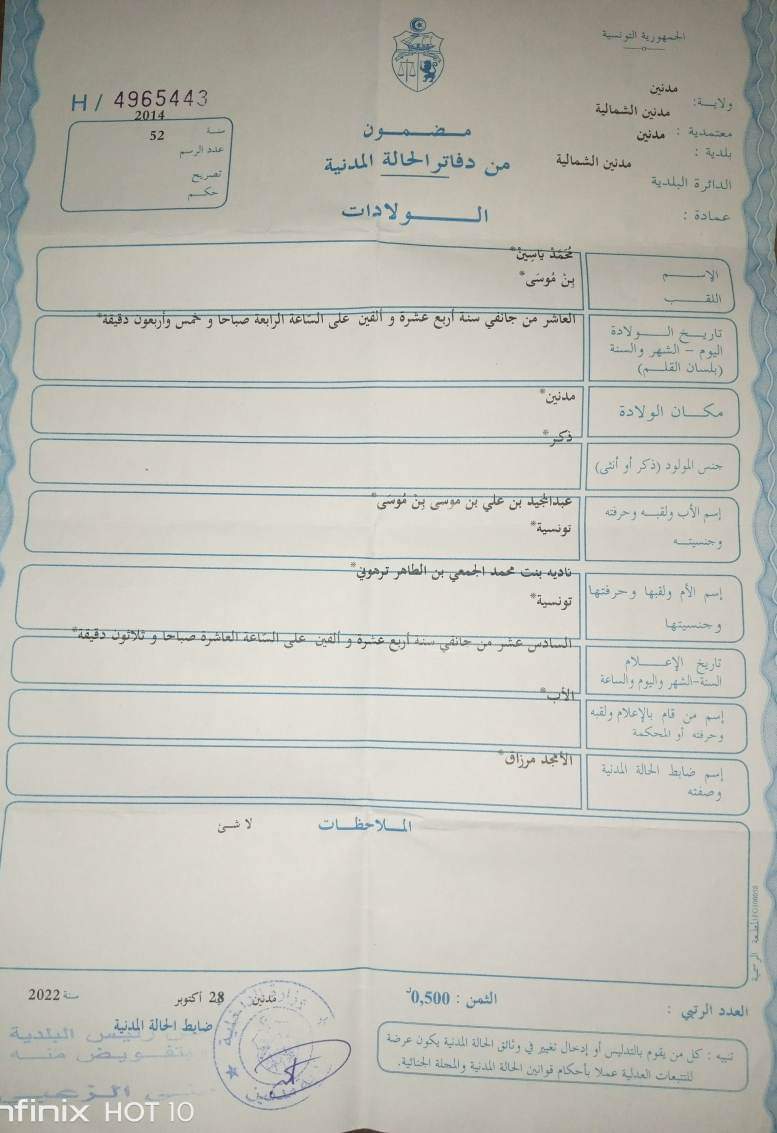 الجمهورية التونسية
ولاية: مدنين
معتمدية : مدنين الشمالية
بلدية : مدنين
الدائرة البلدية مدنين الشمالية
عمادة :
H / 4965443
سنة 2014
عدد الرسم 52
تصريح
حكم
مضمون
من دفاتر الحالة المدنية
الولادات
الإسم مُحَمَّدْ يَاسِينْ*
اللقب بِنْ مُوسَى*
تاريخ الولادة
اليوم - الشهر والسنة
(بلسان القلم)
العاشر من جانفي سنة أربع عشرة و ألفين على السّاعة الرابعة صباحا و خمس وأربعون دقيقة*
مكان الولادة مدنين*
جنس المولود (ذكر أو أنثى) ذكر*
إسم الأب ولقبه وحرفته
وجنسيته
عبدالمجيد بن علي بن موسى بِنْ مُوسَى*
تونسية*
إسم الأم ولقبها وحرفتها
وجنسيتها
ناديه بنت محمد الجمعي بن الطاهر ترهوني*
تونسية*
تاريخ الإعلام
السنة-الشهر واليوم والساعة
السادس عشر من جانفي سنة أربع عشرة و ألفين على السّاعة العاشرة صباحا و ثلاثون دقيقة*
إسم من قام بالإعلام ولقبه
وحرفته أو المحكمة
الأب*
إسم ضابط الحالة المدنية
وصفته
الأمجد مرزاق*
الملاحظات
لا شئ
المطبعة الرسمية
العدد الرتبي :
الثمن : 0,500د
مدنين 28 أكتوبر سنة 2022
ضابط الحالة المدنية
تنبيه : كل من يقوم بالتدليس أو إدخال تغيير في وثائق الحالة المدنية يكون عرضة
للتتبعات العدلية عملا بأحكام قوانين الحالة المدنية والمجلة الجنائية.
وزارة الداخلية
رئيس البلدية
بتفويض منه
nfinix HOT 10